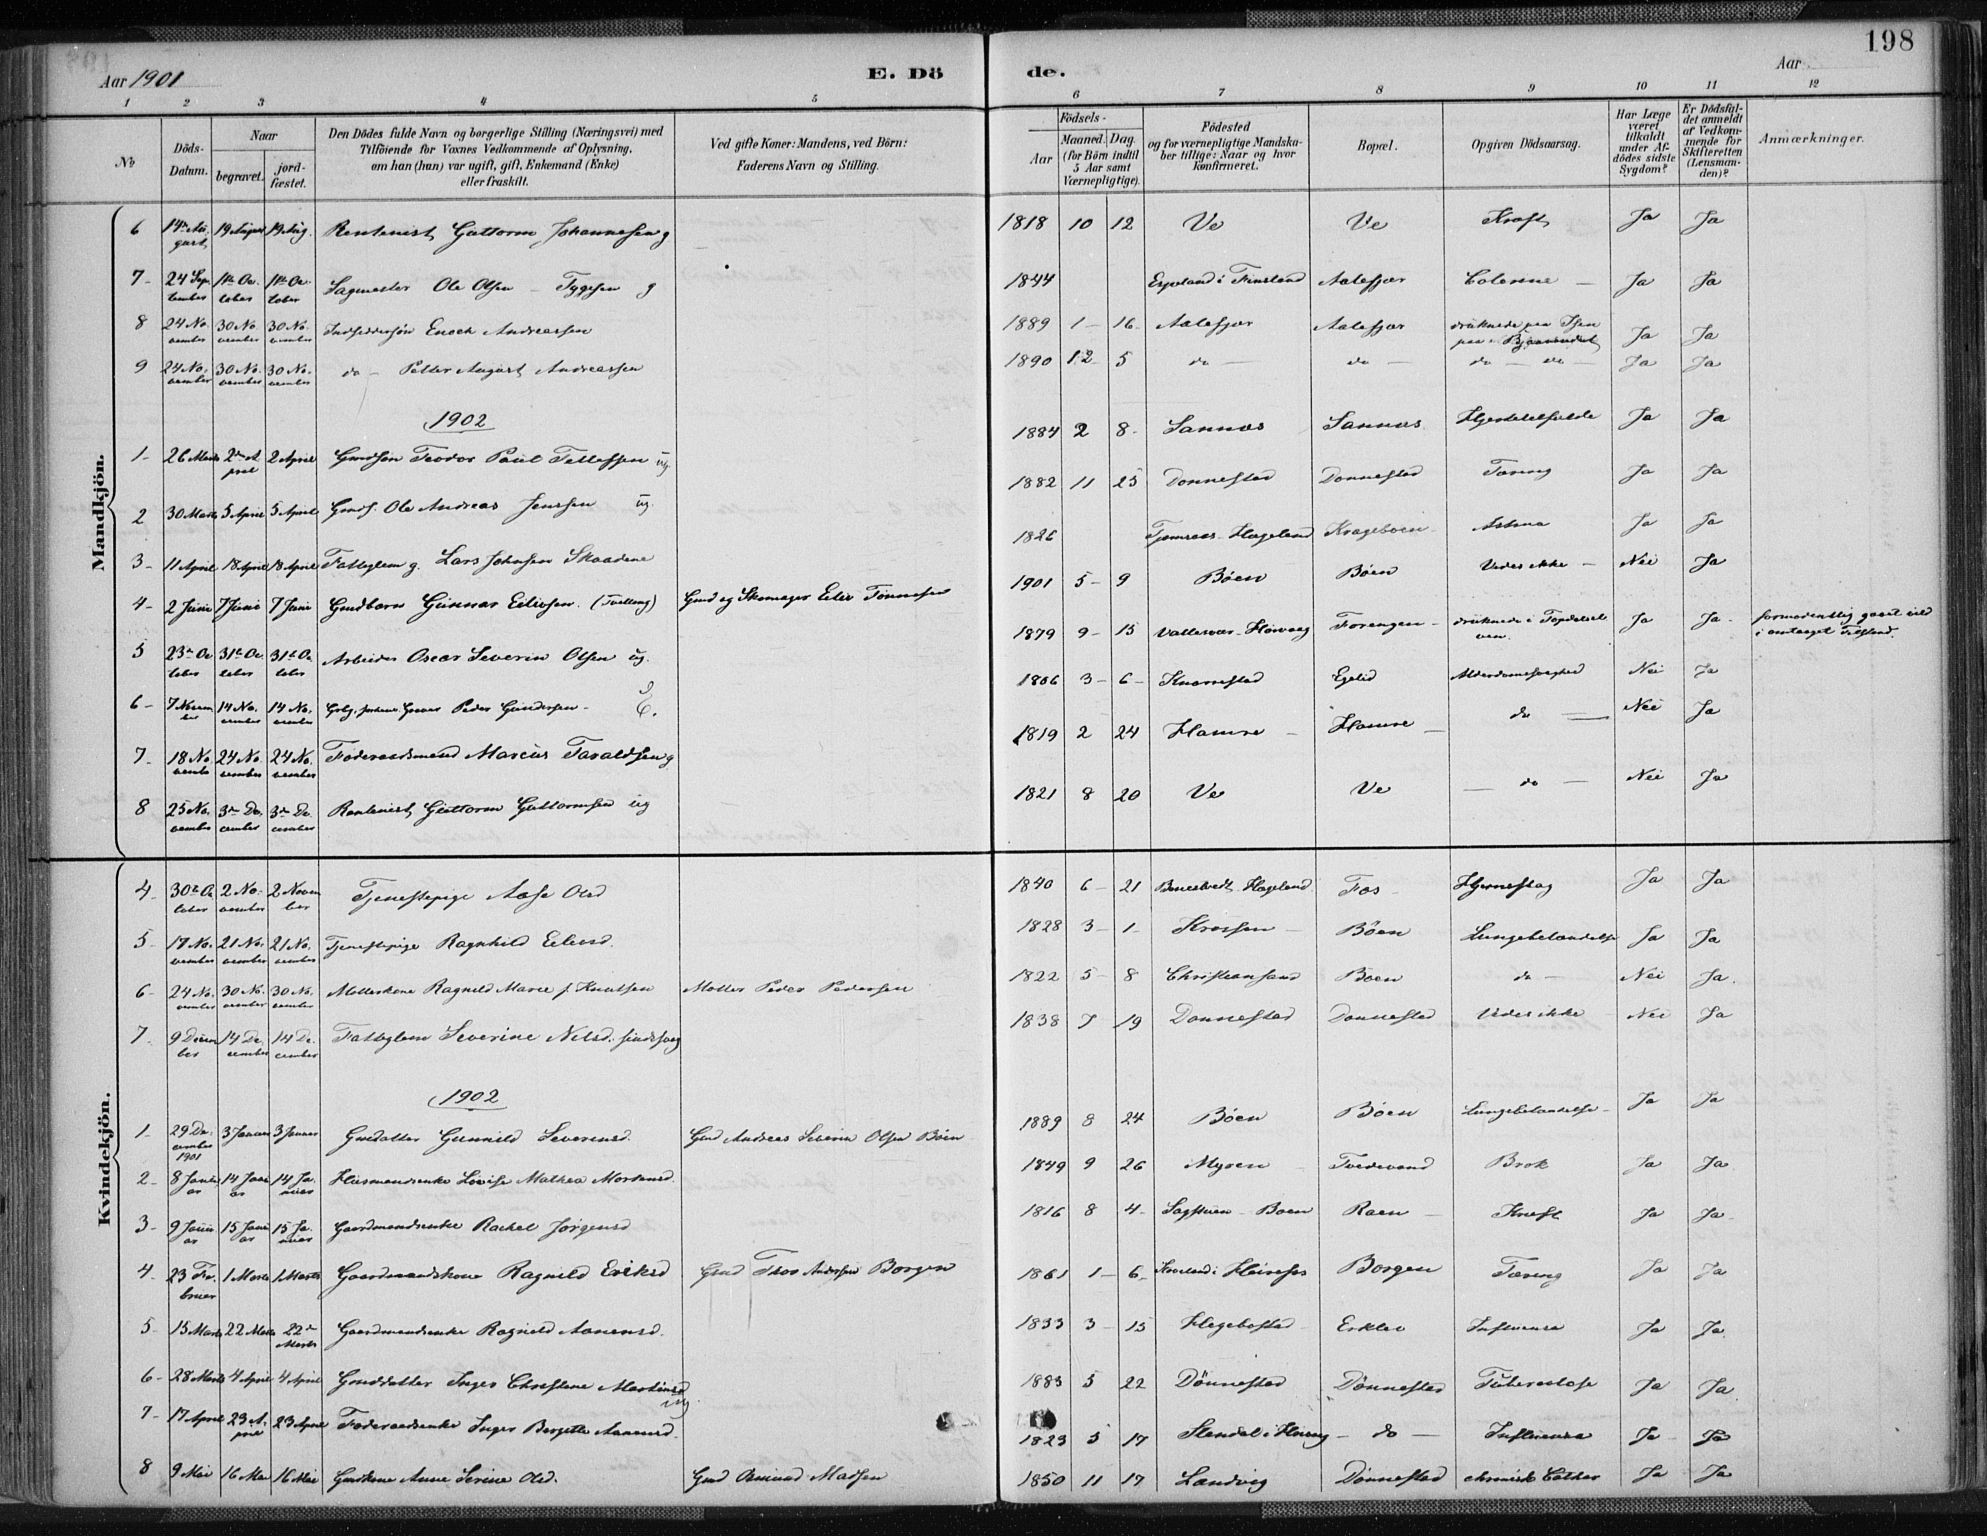 198
Aar 1901
E. Dö
de.
Aar
1 2 3 4 5 6 7 8 9 10 11 12
No
Döds-Datum.
Naar
begravet.
jord-fæstet.
Den Dödes fulde Navn og borgerlige Stilling (Næringsvei) med
Tilföiende for Voxnes Vedkommende af Oplysning,
om han (hun) var ugift, gift, Enkemand (Enke)
eller fraskilt.
Ved gifte Koner: Mandens, ved Börn:
Faderens Navn og Stilling.
Födsels-
Aar
Maaned. Dag.
(for Børn indtil
5 Aar samt
Værnepligtige).
Födested
og for værnepligtige Mandska-
ber tillige: Naar og hvor
konfirmeret.
Bopæl.
Opgiven Dödsaarsag.
Har Læge
været
tilkaldt
under Af-
dödes sidste
Sygdom?
Er Dödsfal-
det anmeldt
af Vedkom-
mende for
Skifteretten
(Lensman-
den)?
Anmærkninger.
Mandkjön.
6 14de August 19 August 19 Aug. Rentenist Guttorm Johannesen g 1818 10 12 Ve Ve Kræft Ja Ja
7 24 September 1ste October 1ste October Sagmester Ole Olsen Tygesen g 1844 i Finsland Aalefjær Ja Ja
8 24 November 30 November 30 November Indsiddersøn Enoch Andreassen 1889 1 16 Aalefjær Aalefjær druknede paa Isen paa Ja Ja
9 24 November 30 November 30 November do Petter August Andreassen 1890 12 5 do do do do Ja Ja
1902
1 26 Marts 2den April 2 April Grndsøn Teodor Paul Tellefsen ug 1884 2 8 Sannæs Sannæs Ja Ja
2 30 Marts 5 April 5 April Grnds. Ole Andreas Jenssen ug. 1882 11 25 Donnestad Donnestad Tæring Ja Ja
3 11 April 18 April 18 April Fattiglem g. Lars Johnsen Skaadene 1826 Hægeland Krageboen Astma Ja Ja
4 2 Juni 7 Juni 7 Juni Grndbarn Gunnar Eilivsen (Tvilling) Grnd og Skomager Eiliv Tønnesen 1901 5 9 Bøen Bøen Vides ikke Nei Ja
5 23de October 31te October 31te October Arbeider Oscar Severin Olsen ug. 1879 9 15 Vallesvær Høvaag druknede i Topdalselven Ja Ja formodentlig gaaet vild i omtaaget Tilstand.
6 7 November 14 November 14 November Peder Gundersen E. 1806 3 6 Knarrestad Egelid Alderdomssvaghed Nei Ja
7 18 November 24 November 24 November Føderaadsmand Marcus Taraldsen g 1819 2 24 Hamre Hamre do Nei Ja
8 25 November 3de December 3de December Rentenist Guttorm Guttormsen ug 1821 8 20 Ve Ve do Nei Ja
Kvindekjön.
4 30te October 2 November 2 November Tjenestepige Aase Olsd 1840 6 21 Hægeland Fos Hjerneslag Ja Ja
5 17 November 21 November 21 November Tjenestepige Ragnhild Eilivsd. 1828 3 1 Krossen Bøen Lungebetændelse Ja Ja
6 24 November 30 November 30 November Møllerkone Ragnild Marie f. Knutsen Møller Peder Pedersen 1822 5 8 Christiansand Boen do Nei Ja.
7 9 December 14 December 14 December Fattiglem Severine Nilsd. sindssvag 1838 7 19 Donnestad Donnestad Vides ikke Nei Ja
1902
1 29 December 1901 3 Januar 3 Januar Grndatter Gunnild Severinsd. Grnd Andreas Severin Olsen Bøen 1889 8 24 Bøen Bøen Lungebetændelse Ja Ja
2 8 Januar 14 Januar 14 Januar Husmandsenke Lovise Mathea Mortensd. 1849 9 26 Myren Tvedevand Brok Ja Ja
3 9 Januar 15 Januar 15 Januar Gaardmandsenke Rachel Jørgensd 1816 8 4 Boen Raen Kræft Ja Ja
4 23 Februar 1 Marts 1 Marts Gaardmandskone Ragnild Eriksd Grnd Thor Andersen Borgen 1861 1 6 Borgen Tæring Ja Ja
5 15 Marts 22 Marts 22de Marts Gaardmandsenke Ragnild Aanensd. 1833 3 15 Hegebostad Erklev Influensa Ja Ja.
6 28 Marts 4 April 4 April Grnddatter Inger Christene Martinsd ug. 1883 5 22 Dønnestad Dønnestad Tuberculose Ja Ja
7 17 April 23 April 23 April Føderaadsenke Inger Bergitte Aanensd. 1823 5 17 Stendal i do Influensa Ja Ja
8 9 Mai 16 Mai 16 Mai Grndkone Anne Serine Olsd. Grnd Osmund Madsen 1850 11 17 Landvig Dønnestad Ja Ja